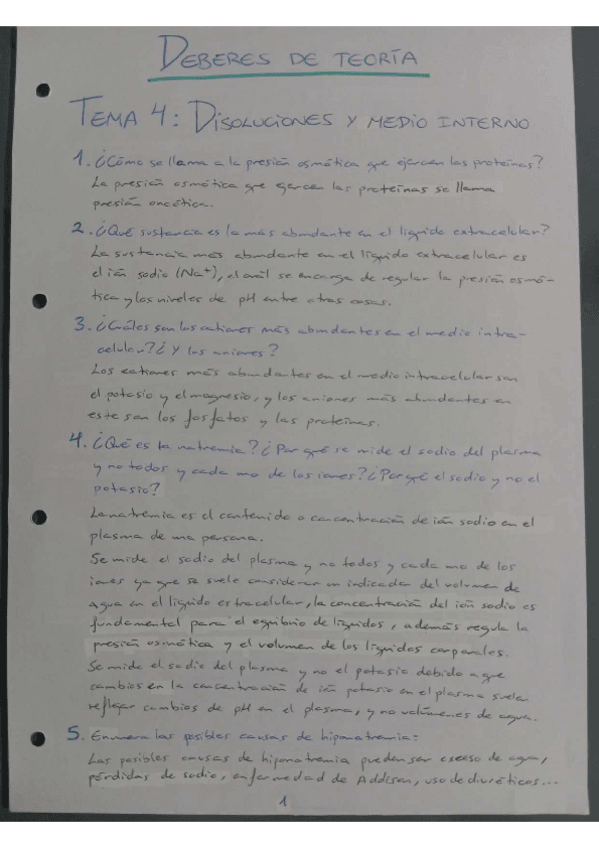 DEBERES DE TEORÍA
TEMA 4: DISOLUCIONES Y MEDIO INTERNO
1. ¿Cómo se llama a la presión osmótica que ejercen las proteínas?
La presión osmótica que ejercen las proteínas se llama
presión oncótica.
2. ¿Qué sustancia es la más abundante en el líquido extracelular?
La sustancia más abundante en el líquido extracelular es
el ión sodio (Na⁺), el cuál se encarga de regular la presión osmó-
tica y los niveles de pH entre otras cosas.
3. ¿Cuáles son los cationes más abundantes en el medio intra-
celular? ¿Y los aniones?
Los cationes más abundantes en el medio intracelular son
el potasio y el magnesio, y los aniones más abundantes en
este son los fosfatos y las proteínas.
4. ¿Qué es la natremia? ¿Por qué se mide el sodio del plasma
y no todos y cada uno de los iones? ¿Por qué el sodio y no el
potasio?
La natremia es el contenido o concentración de ión sodio en el
plasma de una persona.
Se mide el sodio del plasma y no todos y cada uno de los
iones ya que se suele considerar un indicador del volumen de
agua en el líquido extracelular, la concentración del ión sodio es
fundamental para el equilibrio de líquidos, además regula la
presión osmótica y el volumen de los líquidos corporales.
Se mide el sodio del plasma y no el potasio debido a que
cambios en la concentración de ión potasio en el plasma suele
reflejar cambios de pH en el plasma, y no volúmenes de agua.
5. Enumera las posibles causas de hiponatremia:
Las posibles causas de hiponatremia pueden ser exceso de agua,
pérdidas de sodio, enfermedad de Addison, uso de diuréticos...
1